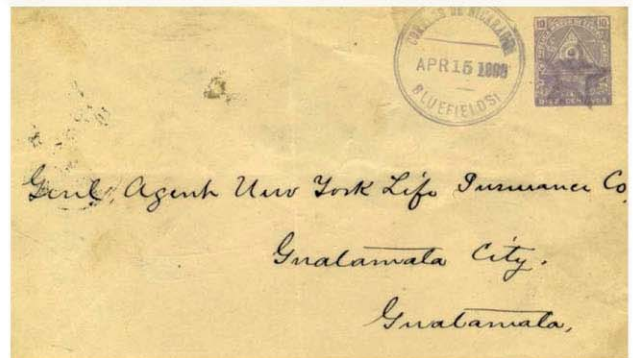 CORREOS DE NICARAGUA
APR 15
BLUEFIELDS
10 10
DIEZ CENTAVOS
Genl. Agent New York Life Insurance Co.
Guatamala City.
Guatamala,